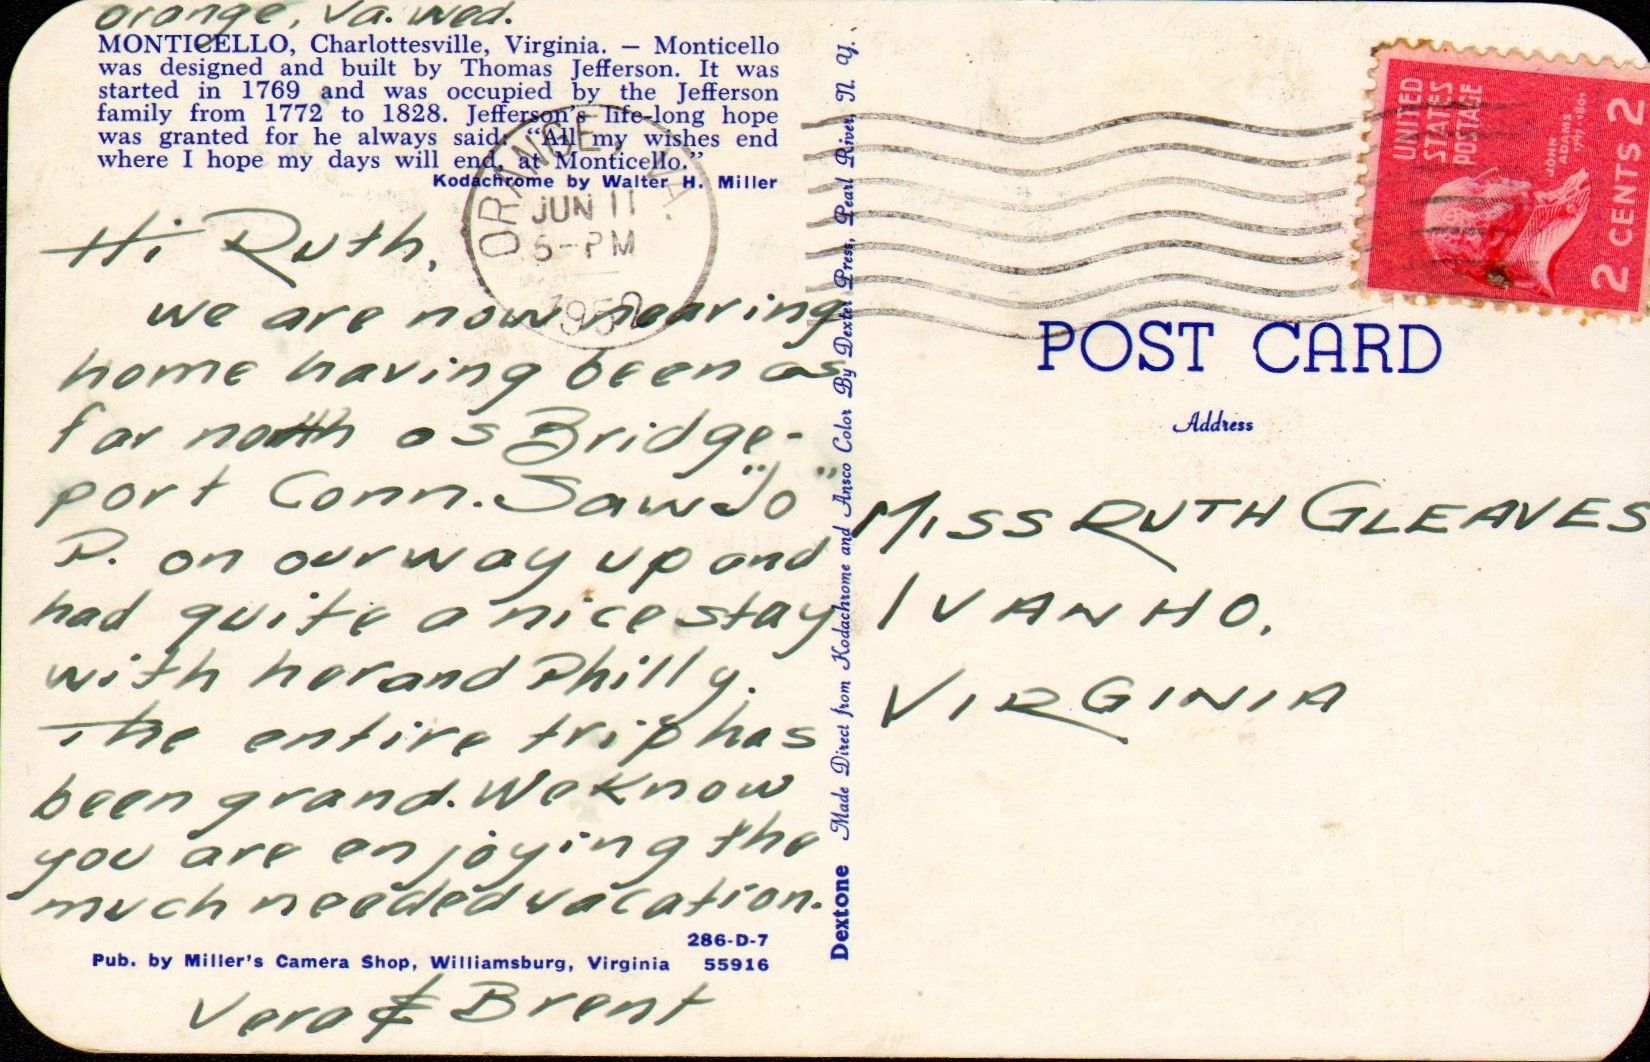 Orange, Va. Wed.
MONTICELLO, Charlottesville, Virginia. — Monticello
was designed and built by Thomas Jefferson. It was
started in 1769 and was occupied by the Jefferson
family from 1772 to 1828. Jefferson's life-long hope
was granted for he always said: "All my wishes end
where I hope my days will end, at Monticello."
Kodachrome by Walter H. Miller
ORANGE, VA.
JUN 11
5-PM
1952
Hi Ruth,
we are now nearing
home having been as
far north as Bridge-
port Conn. Saw "Jo"
P. on our way up and
had quite a nice stay
with her and Philly.
The entire trip has
been grand. We know
you are enjoying the
much needed vacation.
286-D-7
Pub. by Miller's Camera Shop, Williamsburg, Virginia 55916
Vera & Brent
Dextone Made Direct from Kodachrome and Ansco Color By Dexter Press, Pearl River, N. Y.
UNITED
STATES
POSTAGE
JOHN
ADAMS
1797-1801
2 CENTS 2
POST CARD
Address
MISS RUTH GLEAVES
IVANHO,
VIRGINIA